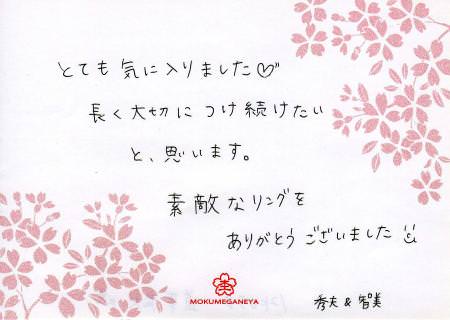 とても気に入りました♡
長く大切につけ続けたい
と、思います。
素敵なリングを
ありがとうございました
MOKUMEGANEYA
秀夫 & 智美